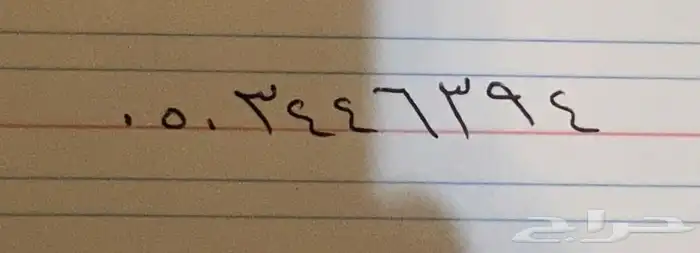 ٠٥٠٣٤٤٦٣٩٤
حراج